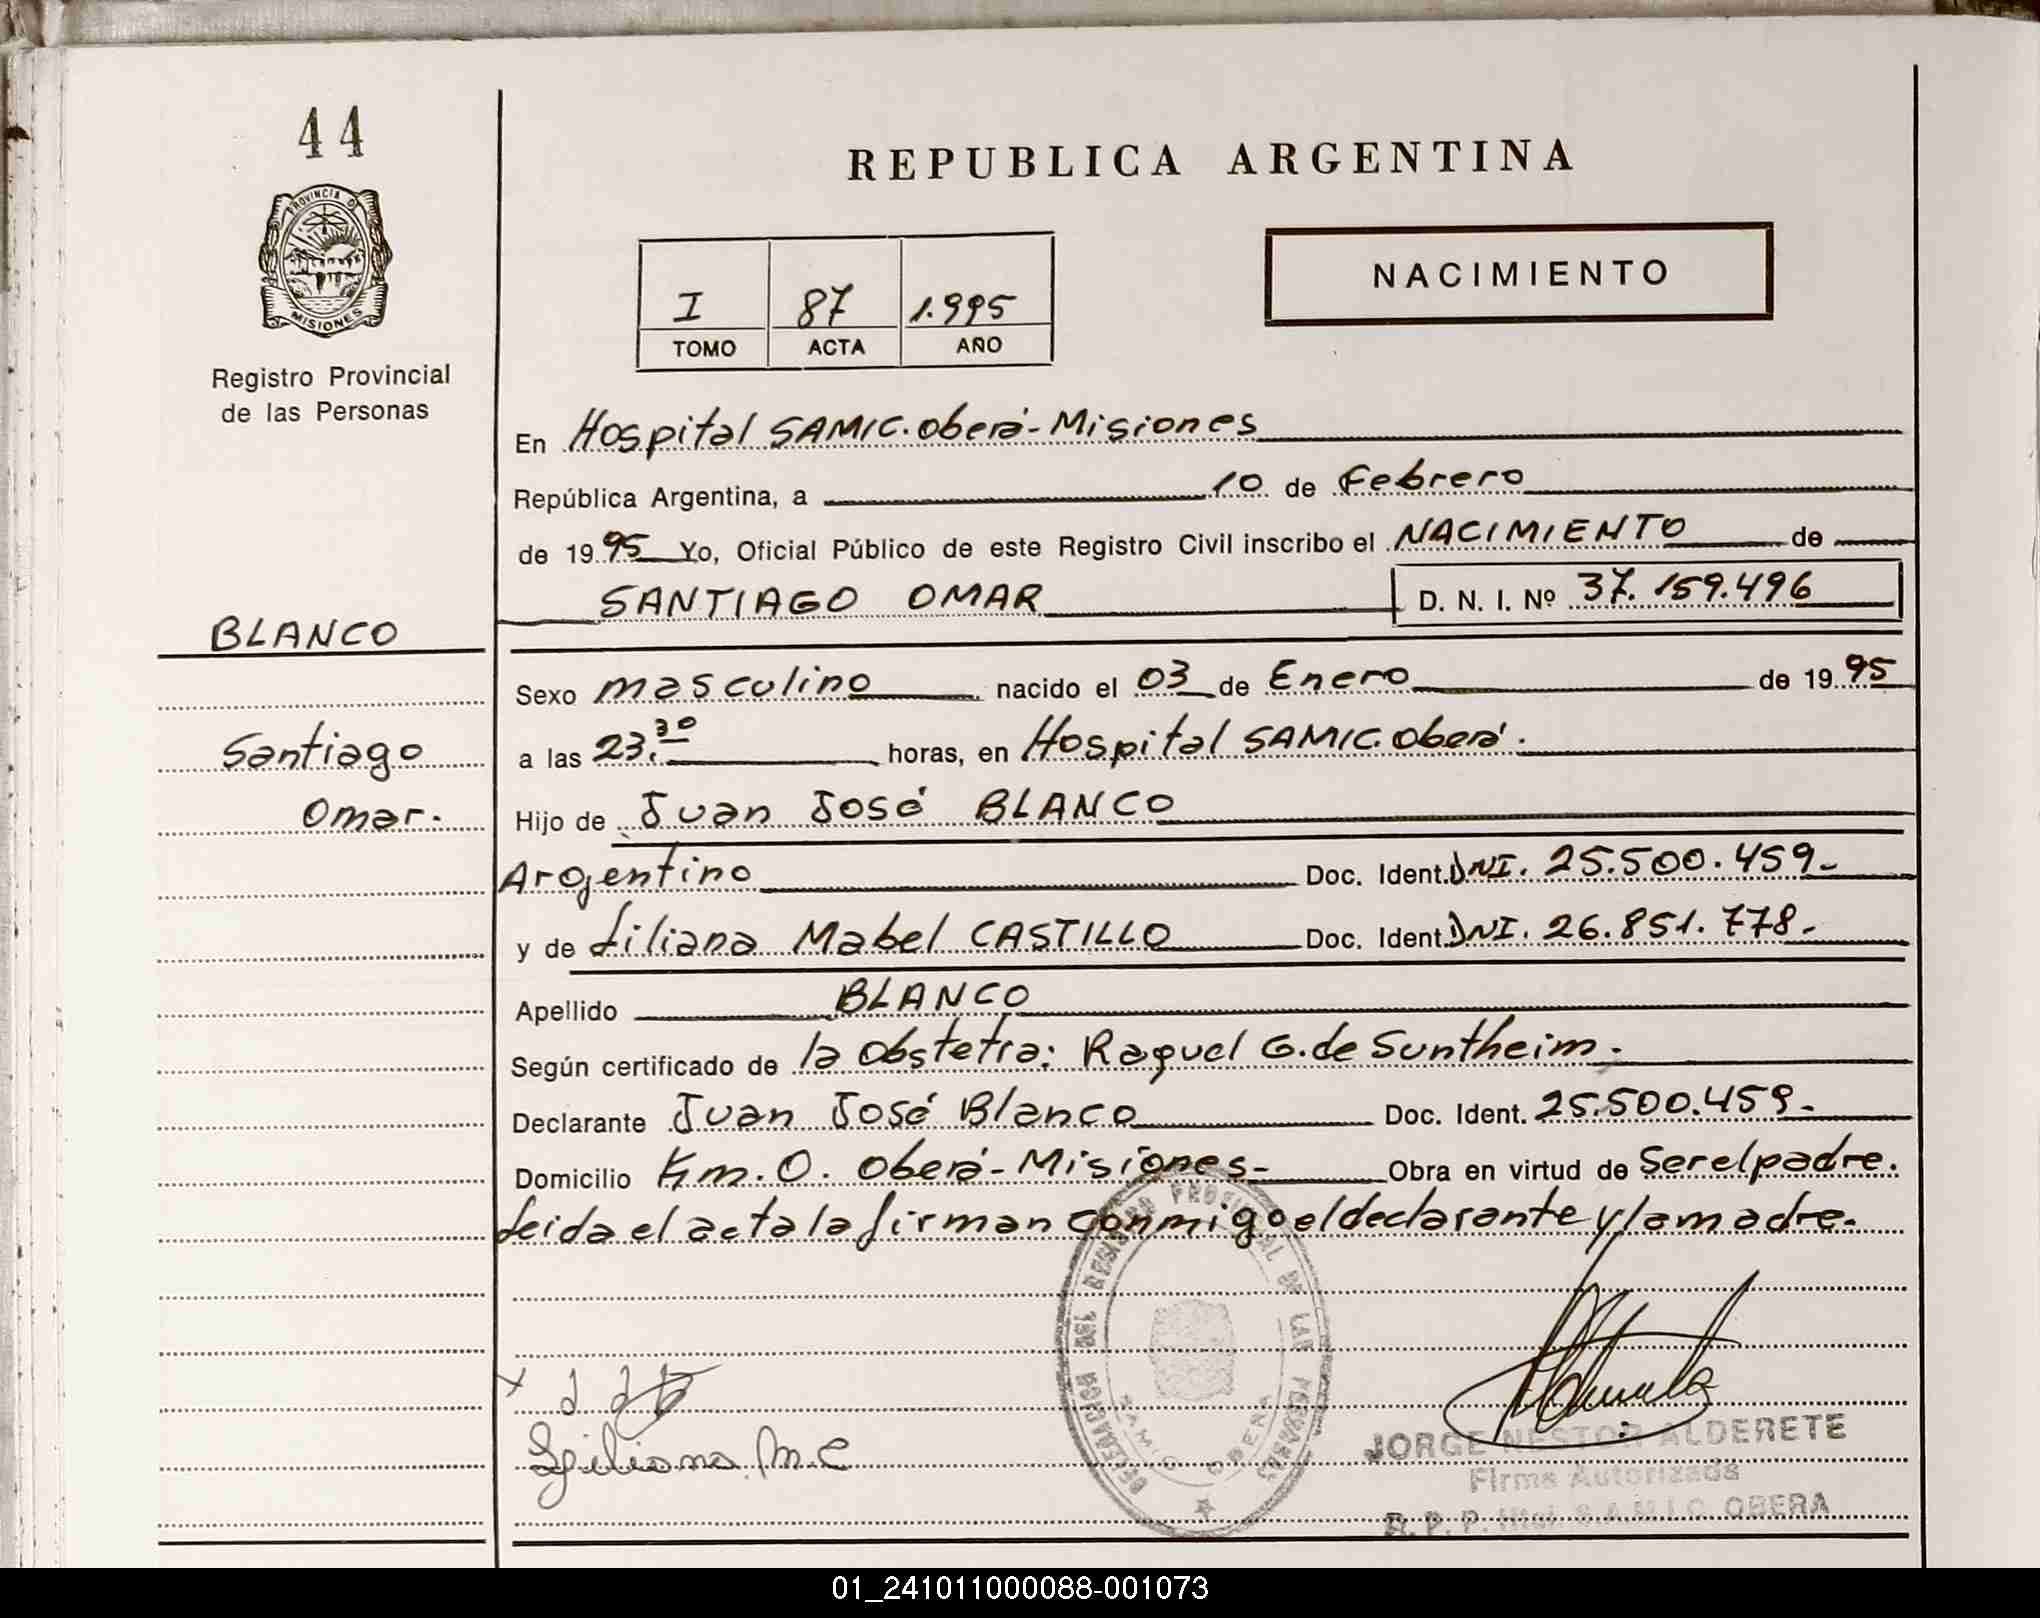 44
REPUBLICA ARGENTINA
PROVINCIA DE
MISIONES
NACIMIENTO
I 87 1.995
TOMO ACTA AÑO
Registro Provincial
de las Personas
En Hospital SAMIC. Oberá - Misiones
República Argentina, a 10 de Febrero
de 1995 Yo, Oficial Público de este Registro Civil inscribo el NACIMIENTO de
SANTIAGO OMAR D. N. I. Nº 37.159.496
BLANCO
Sexo masculino nacido el 03 de Enero de 1995
Santiago
a las 23.30 horas, en Hospital SAMIC. Oberá.
Omar.
Hijo de Juan José BLANCO
Argentino Doc. Ident. DNI. 25.500.459-
y de Liliana Mabel CASTILLO Doc. Ident. DNI. 26.851.778.-
Apellido BLANCO
Según certificado de la Obstetra: Raquel G. de Suntheim.
Declarante Juan José Blanco Doc. Ident. 25.500.459-
Domicilio Km. 0. Oberá - Misiones- Obra en virtud de Ser el padre.
Leida el acta la firman conmigo el declarante y la madre.
DELEGACION DEL REGISTRO PROVINCIAL DE LAS PERSONAS
SAMIC OBERA
Liliana M. C
JORGE NESTOR ALDERETE
Firma Autorizada
R. P. P. Htal. S.A.M.I.C. OBERA
01_241011000088-001073